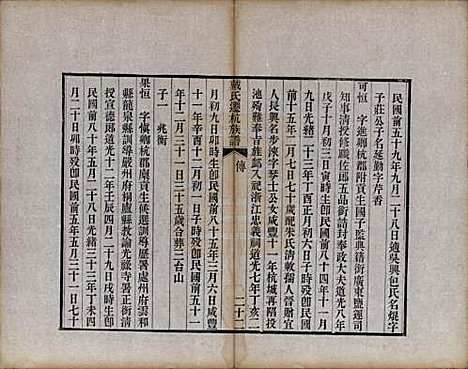 民國前五十九年九月二十八日適吳興包氏名焜字
子莊公子名延勤字芹香
可恒 字進鄉杭郡附貢生國子監典籍銜廣東鹽運司
知事清授修職佐郎五品銜誥封奉政大夫道光八年
戊子十月初三日寅時生即民國前八十四年十一月
九日光緒二十三年丁酉正月初六日子時歿即民國
前十五年二月七日七十歲配朱氏清敕孺人晉贈宜
人長興名步洙字琴士公女咸豐十一年杭城再陷投
池殉難奉旨族䣊入祀浙江忠義祠道光七年丁亥二
戴氏遷杭族譜 傳 二十二
月初九日卯時生即民國前八十五年三月六日咸豐
十一年辛酉十二月初一日子時歿即民國前五十一
年十二月三十一日三十五歲合葬三台山
子一 兆衡
果恒 字慎鄉杭郡廩貢生候選訓導歷署處州府雲和
縣龍泉縣訓導嚴州府桐廬縣教諭光祿寺署正銜清
授宣德郎道光十二年壬辰四月二十日戌時生即
民國前八十年五月十八日光緒三十三年丁未四
月二十日卯時歿即民國前五年五月三十一日七十